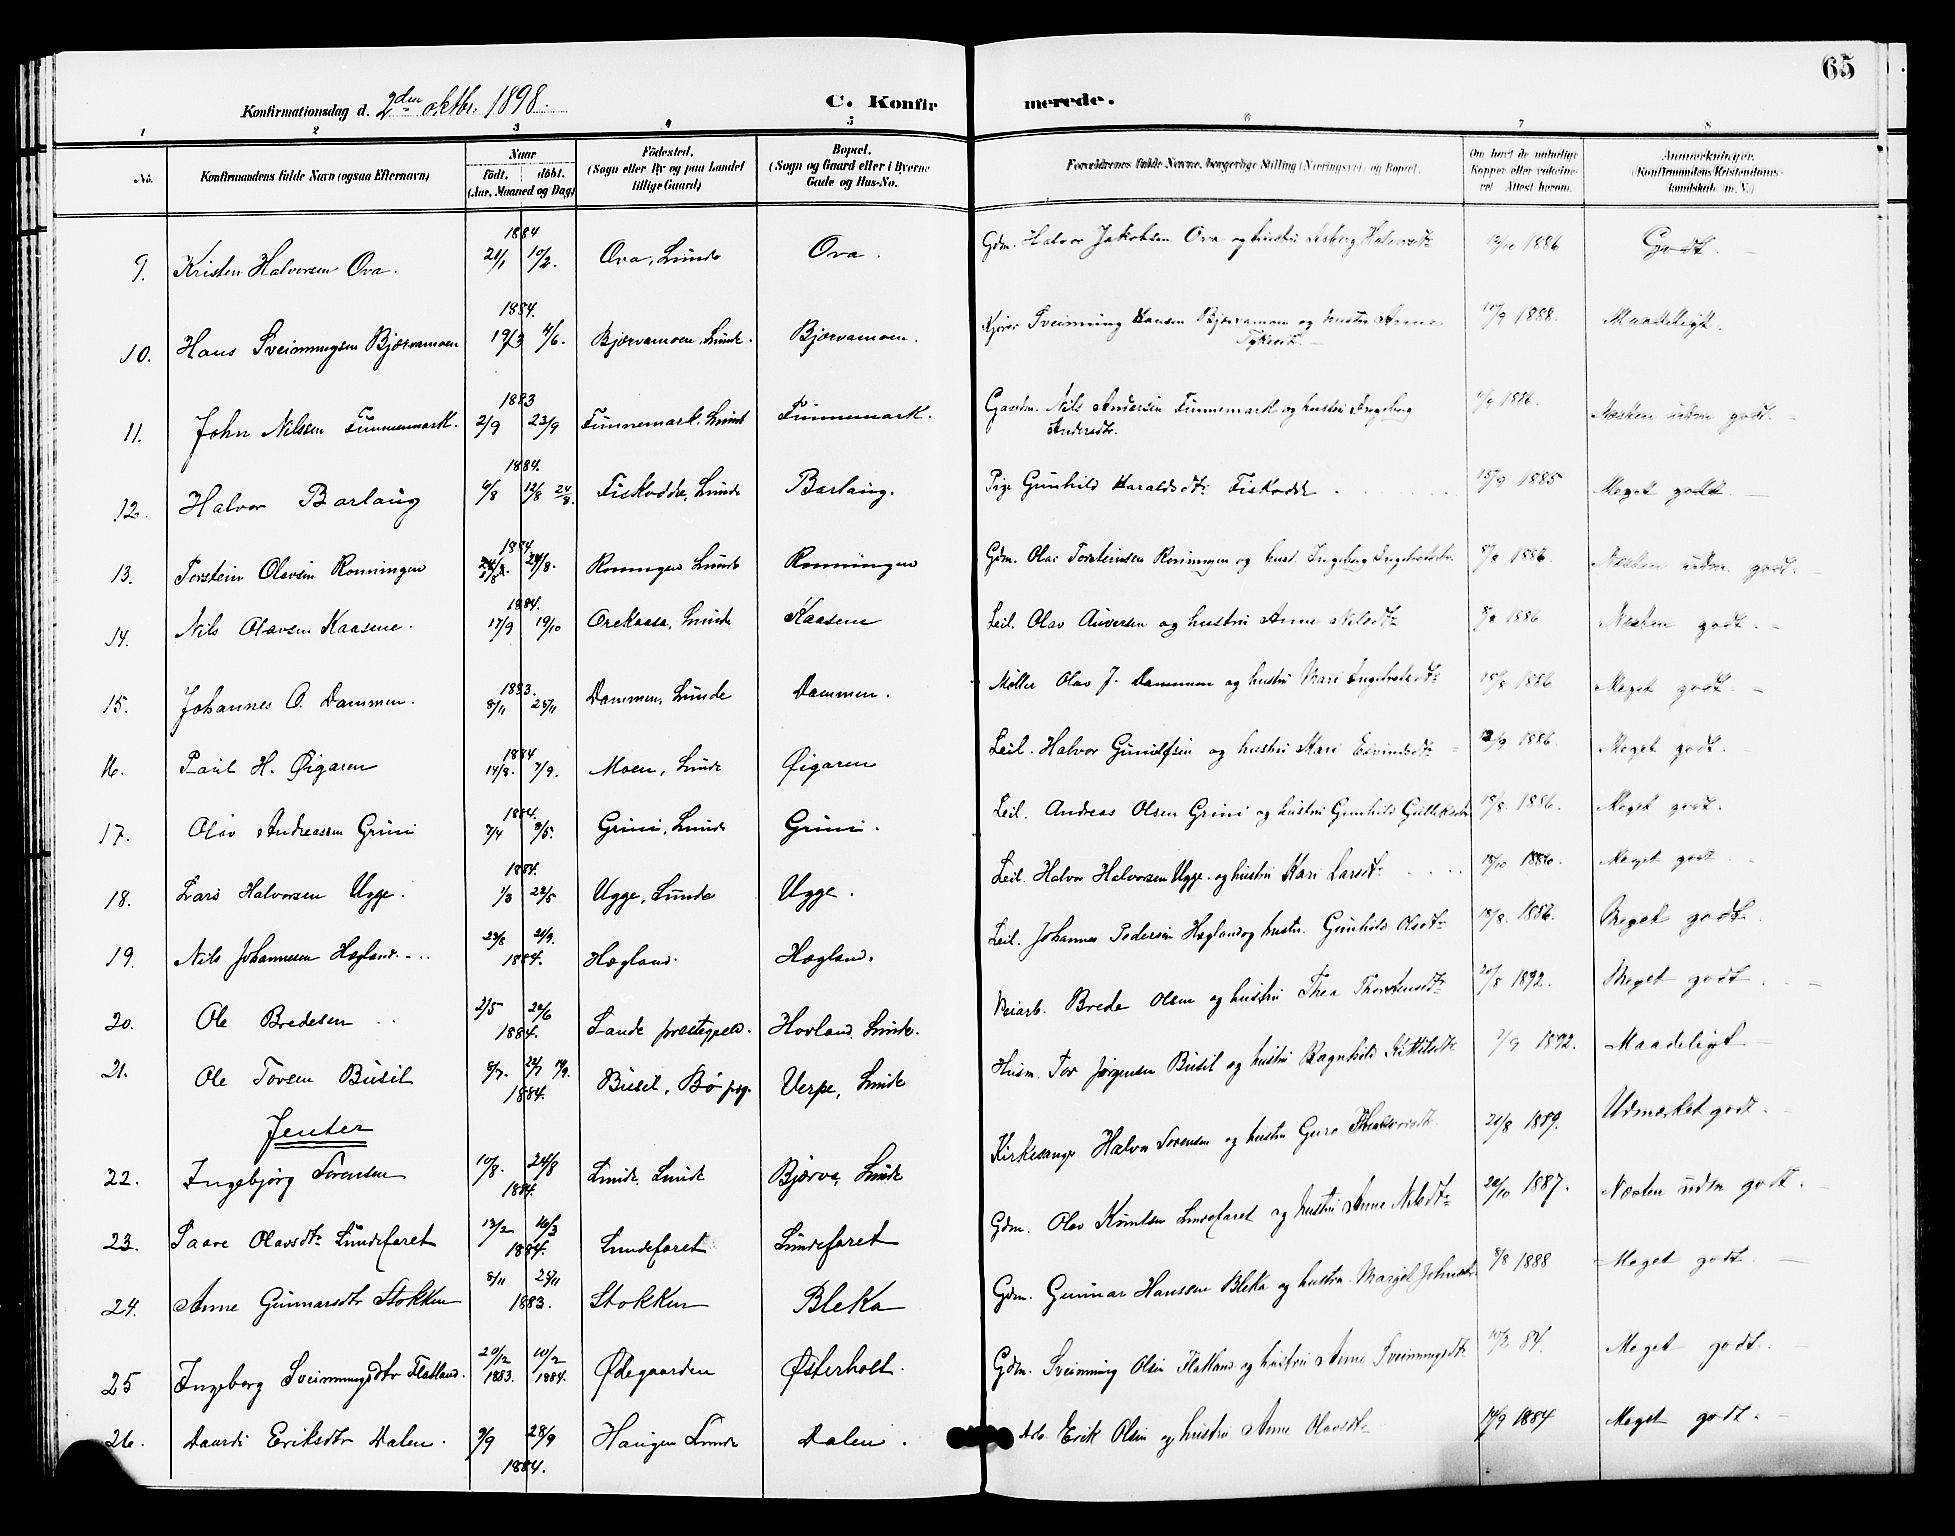 65
Konfirmationsdag d. 2den oktbr. 1898.
C. Konfirmerede.
1 2 3 4 5 6 7 8
No. | Konfirmandens fulde Navn (ogsaa Efternavn) | Naar født. døbt. (Aar, Maaned og Dag) | Fødested. (Sogn eller By og paa Landet tillige Gaard) | Bopæl. (Sogn og Gaard eller i Byerne Gade og Hus-No. | Forældrenes fulde Navne, borgerlige Stilling (Næringsvei) og Bopæl. | Om havt de naturlige Kopper eller vaccineret. Attest herom. | Anmærkninger. (Konfirmandens Kristendomskundskab m. V.)
9. Kristen Halvorsen Ova. 1884 21/1 10/2. Ova, Lunde Ova. Gdm. Halvor Jakobsen Ova og hustru Halvorsdtr 1886 Godt.
10. Hans Sveinungsen Bjørvamoen 1884. 19/3 4/6. Bjørvamoen, Lunde. Bjørvamoen. Sveinung Hansen Bjørvamoen og hustru Anne 10/9 1888. Maadeligt.
11. John Nilsen Finnemark. 1883 2/9 23/9 Finnemark, Lunde Finnemark. Gaardm. Nils Andersen Finnemark og hustru Ingeborg Andersdtr. 1886. Næsten udm godt.
12. Halvor Barlaug 1884. 6/8 12/8 24/8. Fiskodde, Lunde Barlaug. Pige Gunhild Haraldsdtr Fiskodde 15/9 1885 Meget godt
13. Torstein Olavsen Rønningen 1884 24/8. Rønningen Lunde Rønningen Gdm. Olav Torsteinsen Rønningen og hust. Ingeborg 1886. Næsten udm. godt.
14. Nils Olavsen Kaasene. 1884. 17/9 19/10 Orekaasa, Lunde Kaasene Leil. Olav Auversen og hustru Anne Nilsdtr 8/8 1886 Næsten godt.
15. Johannes O. Dammen. 1883. 8/11 25/11 Dammen, Lunde Dammen. Møller Olav J. Dammen og hustru Mari 15/8 1886 Meget godt.
16. Paul H. Øigaren 1884 14/8. 7/9. Moen, Lunde Øigaren Leil. Halvor Gunulfsen og hustru Mari Eivindsdtr 1886. Meget godt.
17. Olav Andreassen Grini 1884. 7/4 Grini, Lunde Grini. Leil. Andreas Olsen Grini og hustru Gunhild Gulleksdtr 15/8 1886. Meget godt.
18. Lars Halvorsen Ugge. 1884. 1/3 22/5 Ugge, Lunde Ugge. Leil. Halvor Halvorsen Ugge. og hustru Kari Larsdtr. 18/10 1886. Meget godt
19. Nils Johannesen Hægland. 23/8 21/9. 1884. Hægland. Hægland. Leil. Johannes Pedersen Hægland og hustru. Gunhild Olsdtr 18/8. 1886. Meget godt.
20. Ole Bredesen 2/5 22/6 1884. Sande præstegjeld. Hovland, Lunde. Veiarb. Brede Olsen og hustru Thea Thorstensdtr 20/8 1892. Meget godt
21. Ole Torsen Busil 8/7. 22/7 14/9. 1884. Busil, Bø pgj. Verpe, Lunde Husm. Tor Jørgensen Busil og hustru Ragnhild Kittilsdtr 2/9 1892. Maadeligt
Jenter
22. Ingebjørg Sørensen 10/8. 24/8 1884. Lunde, Lunde Bjørva, Lunde Kirkesanger Halvor Sørensen og hustru Guro 21/8 1889. Udmærket godt.
23. Paave Olavsdtr Lundefaret 13/2 16/3 1884. Lundefaret Lundefaret Gdm. Olav Lundefaret og hustru Anne Nilsdtr 20/10 1887. Næsten udm godt.
24. Anne Gunnarsdtr Stokken 8/11 25/11 1883. Stokken Bleka Gdm. Gunnar Hanssen Bleka og hustru Margit Johnsdtr 8/8 1888 Meget godt.
25 Ingeborg Sveinungsdtr Flatland. 20/12 1883. 10/2 1884. Ødegaarden Østerholt. Gdm. Sveinung Olsen Flatland og hustru Anne Sveinungsdtr 10/3 84. Meget godt.
26. Daardi Eriksdtr Dalen. 9/9 28/9 1884. Haugen Lunde Dalen. Arb. Erik Olsen og hustru Anne Olavsdtr 14/9 1884 Meget godt.